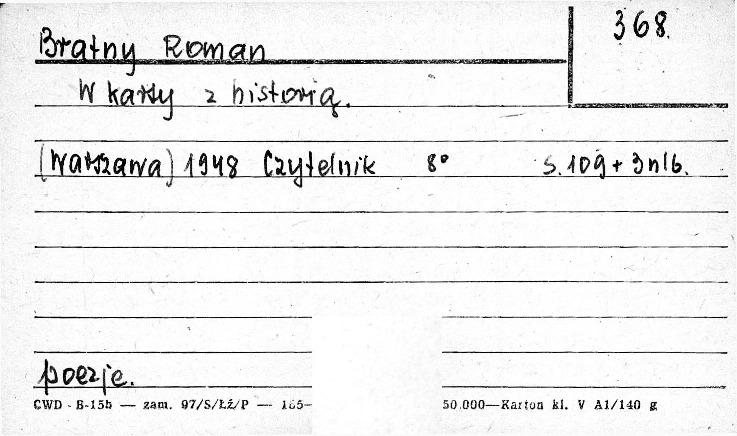 368.
Bratny Roman
W karty z historią.
(Warszawa) 1948 Czytelnik 8° s. 109 + 3 nlb.
poezje.
CWD - B-15b — zam. 97/S/Łź/P — 165— 50.000—Karton kl. V A1/140 g